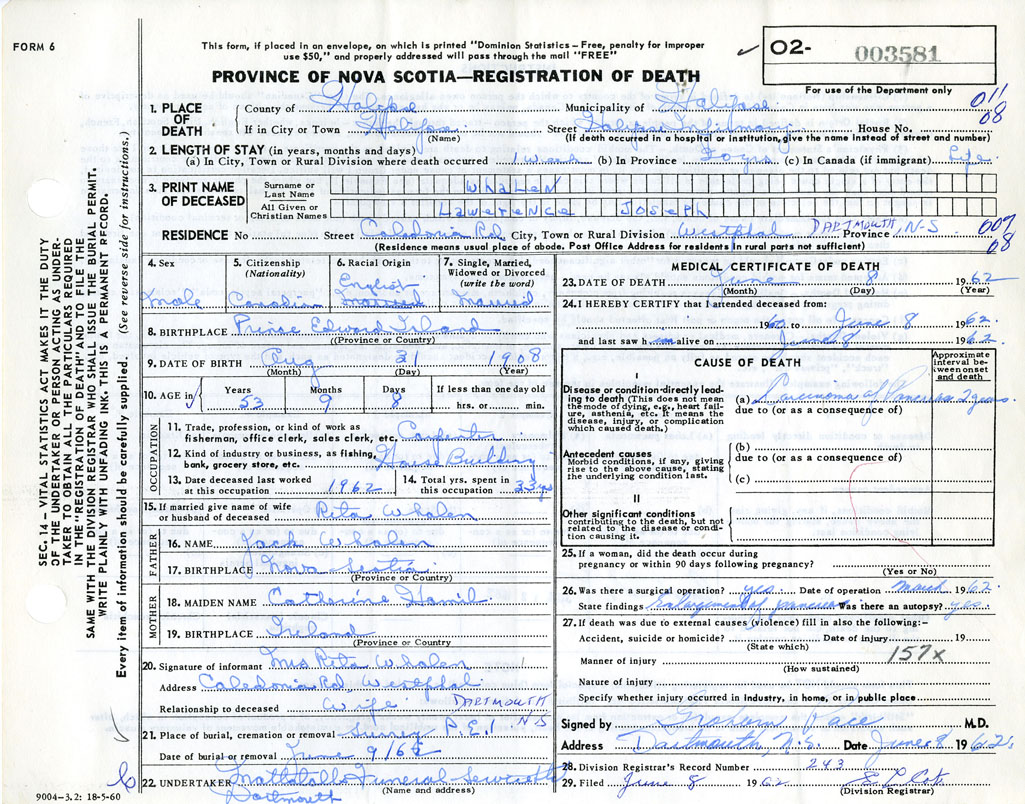 FORM 6
This form, if placed in an envelope, on which is printed "Dominion Statistics – Free, penalty for improper
use $50," and properly addressed will pass through the mail "FREE"
✓ O2- 003581
PROVINCE OF NOVA SCOTIA—REGISTRATION OF DEATH
For use of the Department only
011
08
1. PLACE OF DEATH { County of Halifax Municipality of Halifax
If in City or Town Halifax (Name) Street Halifax Infirmary House No.
(If death occurred in a hospital or institution, give the name instead of street and number)
2. LENGTH OF STAY (in years, months and days)
(a) In City, Town or Rural Division where death occurred 1 week (b) In Province (c) In Canada (if immigrant) Life
3. PRINT NAME OF DECEASED { Surname or Last Name WHALEN
All Given or Christian Names LAWERENCE JOSEPH
RESIDENCE No Street Caledonia Rd City, Town or Rural Division Westphal DARTMOUTH, N-S Province 007
08
(Residence means usual place of abode. Post Office Address for residents in rural parts not sufficient)
4. Sex Male
5. Citizenship (Nationality)
6. Racial Origin English Married
7. Single, Married, Widowed or Divorced (write the word) Married
8. BIRTHPLACE Prince Edward Island
(Province or Country)
9. DATE OF BIRTH Aug 31 1908
(Month) (Day) (Year)
10. AGE in ✓ Years 53 Months 9 Days 8 If less than one day old hrs. or min.
OCCUPATION
11. Trade, profession, or kind of work as fisherman, office clerk, sales clerk, etc. Carpenter
12. Kind of industry or business, as fishing, bank, grocery store, etc. House Building
13. Date deceased last worked at this occupation 1962
14. Total yrs. spent in this occupation 33 yrs
15. If married give name of wife or husband of deceased Rita Whalen
FATHER
16. NAME Jack Whalen
17. BIRTHPLACE Nova Scotia
(Province or Country)
MOTHER
18. MAIDEN NAME Catherine Hamil
19. BIRTHPLACE Ireland
(Province or Country
20. Signature of informant Mrs Rita Whalen
Address Caledonia Rd, Westphal
Relationship to deceased wife DARTMOUTH N-S
21. Place of burial, cremation or removal Surrey P.E.I
Date of burial or removal June 9/62
22. UNDERTAKER Funeral
(Name and address)
Dartmouth
9004-3.2: 18-5-60
MEDICAL CERTIFICATE OF DEATH
23. DATE OF DEATH June 8 1962
(Month) (Day) (Year)
24. I HEREBY CERTIFY that I attended deceased from:
1960 to June 8 1962
and last saw him alive on June 8 1962
CAUSE OF DEATH
Approximate interval between onset and death
I
Disease or condition directly leading to death (This does not mean the mode of dying, e.g., heart failure, asthenia, etc. It means the disease, injury, or complication which caused death.)
(a) Carcinoma of Pancreas 2 years
due to (or as a consequence of)
Antecedent causes
Morbid conditions, if any, giving rise to the above cause, stating the underlying condition last.
(b)
due to (or as a consequence of)
(c)
II
Other significant conditions
contributing to the death, but not related to the disease or condition causing it.
25. If a woman, did the death occur during
pregnancy or within 90 days following pregnancy?
(Yes or No)
26. Was there a surgical operation? yes Date of operation March 1962
State findings Enlargement of pancreas Was there an autopsy? yes
27. If death was due to external causes (violence) fill in also the following:-
Accident, suicide or homicide? Date of injury 19
(State which)
157x
Manner of injury
(How sustained)
Nature of injury
Specify whether injury occurred in industry, in home, or in public place
Signed by Graham Pace M.D.
Address Dartmouth, N.S. Date June 8 1962
28. Division Registrar's Record Number 243
29. Filed June 8 1962
(Division Registrar)
SEC. 14 – VITAL STATISTICS ACT MAKES IT THE DUTY
OF THE UNDERTAKER OR PERSON ACTING AS UNDER-
TAKER TO OBTAIN ALL THE PARTICULARS REQUIRED
IN THE "REGISTRATION OF DEATH" AND TO FILE THE
SAME WITH THE DIVISION REGISTRAR WHO SHALL ISSUE THE BURIAL PERMIT.
WRITE PLAINLY WITH UNFADING INK. THIS IS A PERMANENT RECORD.
Every item of information should be carefully supplied. (See reverse side for instructions.)